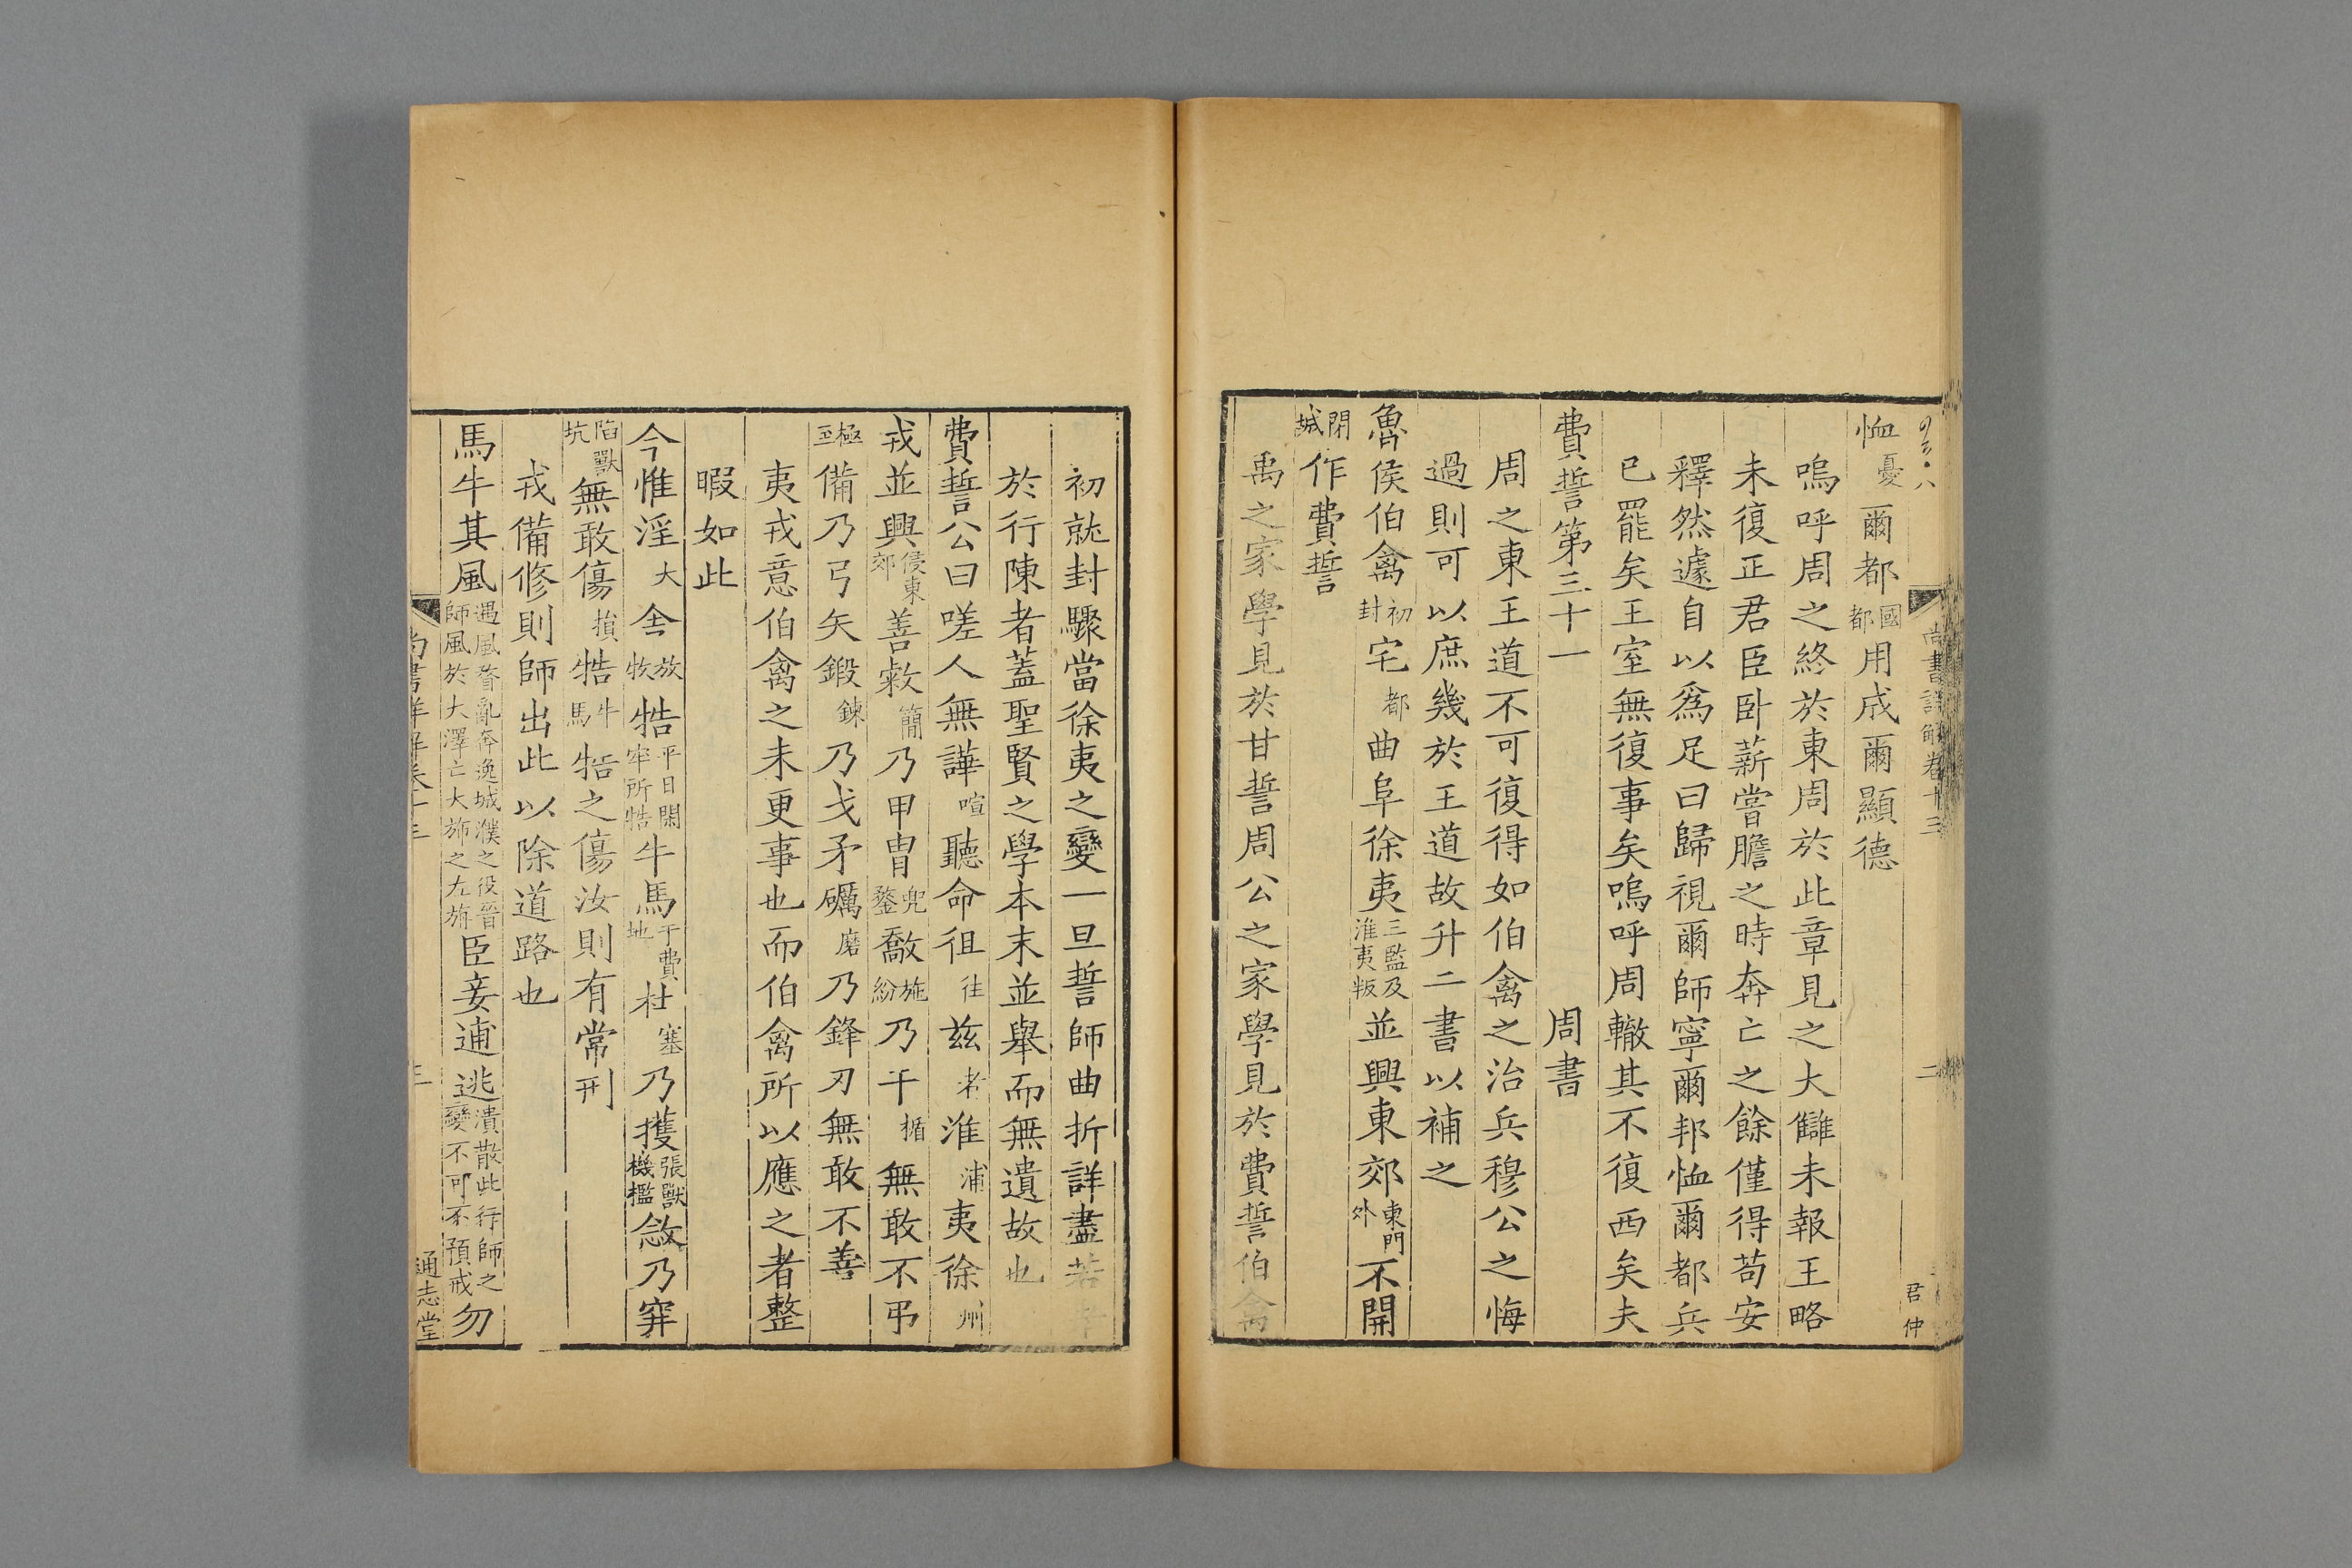 恤憂爾都國都用成爾顯德
嗚呼周之終於東周於此章見之大讎未報王略
未復正君臣臥薪嘗膽之時奔亡之餘僅得苟安
釋然遽自以爲足曰歸視爾師寧爾邦恤爾都兵
已罷矣王室無復事矣嗚呼周轍其不復西矣夫
費誓第三十一 周書
周之東王道不可復得如伯禽之治兵穆公之悔
過則可以庶幾於王道故升二書以補之
魯侯伯禽初封宅都曲阜徐夷三監及淮夷叛並興東郊東門外不開
閉城作費誓
禹之家學見於甘誓周公之家學見於費誓伯禽
尚書詳解卷十三 二
君仲
初就封驟當徐夷之變一旦誓師曲折詳盡若
於行陳者蓋聖賢之學本末並舉而無遺故也
費誓公曰嗟人無譁喧聽命徂往兹者淮浦夷徐州
戎並興侵東郊善敹簡乃甲冑兜鍪敿施紛乃干楯無敢不弔
極至備乃弓矢鍛鍊乃戈矛礪磨乃鋒刃無敢不善
夷戎意伯禽之未更事也而伯禽所以應之者整
暇如此
今惟淫大舍放牧牿平日閑牢所牿牛馬于費地杜塞乃擭張獸機檻敜乃穽
陷獸坑無敢傷損牿牛馬牿之傷汝則有常刑
戎備修則師出此以除道路也
馬牛其風遇風瞀亂奔逸城濮之役晉師風於大澤亡大旆之左旃臣妾逋逃潰散此行師之變不可不預戒勿
尚書詳解卷十三 三
通志堂